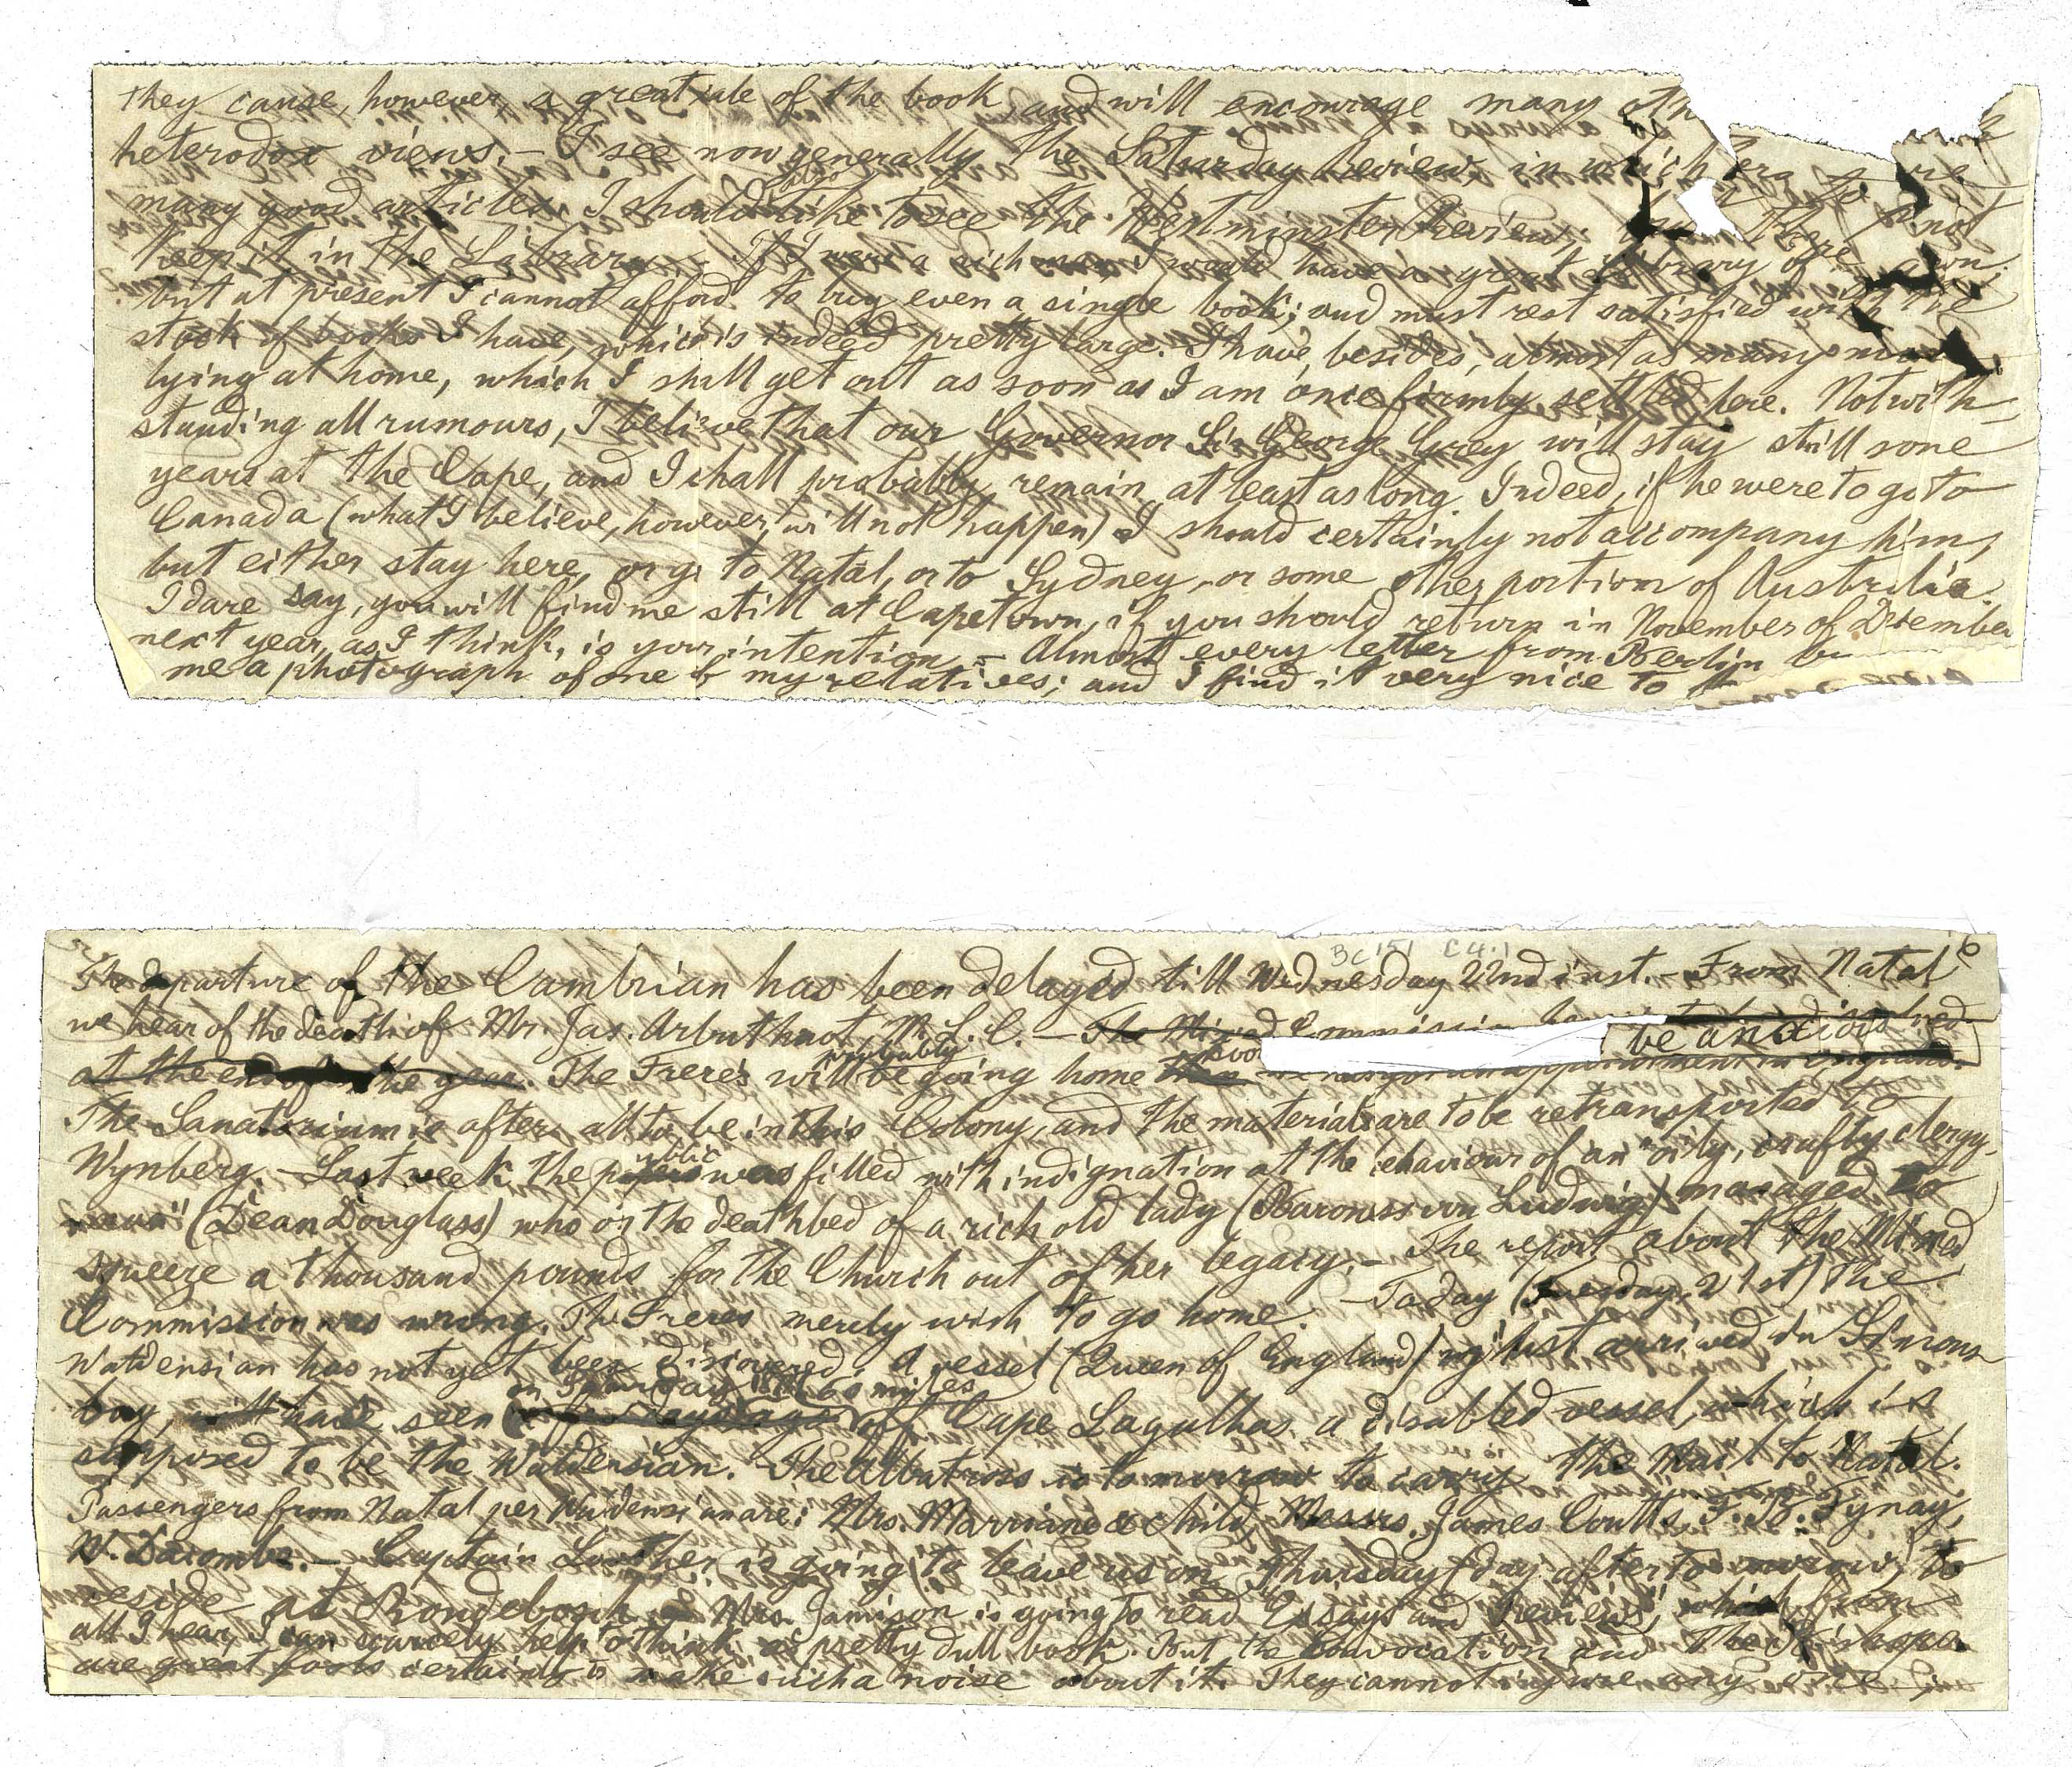 they cause, however, a great sale of the book, and will encourage many
heterodox views. – I see now generally the Saturday Review, in which are
many good articles. I should also like to see the Westminster Review; but they do not
keep it in the Library. – If I were a rich man I would have a great library of my own;
but at present I cannot afford to buy even a single book; and must rest satisfied with the
stock of books I have, which is indeed pretty large. I have, besides, almost as many more
lying at home, which I shall get out as soon as I am once firmly settled here. Notwith-
standing all rumours, I believe that our Governor Sir George Grey will stay still some
years at the Cape, and I shall probably remain at least as long. Indeed, if he were to go to
Canada (what I believe, however, will not happen) I should certainly not accompany him,
but either stay here, or go to Natal, or to Sydney, or some other portion of Australia.
I dare say, you will find me still at Capetown, if you should return in November of December
next year, as I think, is your intention. – Almost every letter from Berlin
me a photograph of one of my relatives; and I find it very nice to
BC 151 C4.1
6
The departure of the Cambrian has been delayed till Wednesday 22nd inst. – From Natal
we hear of the death of Mr. Jas. Arbuthnot, M.L.C. – The Mixed Commission
be anxious
at the end of the year. The Frere's will probably be going home
The Sanatorium is after all to be in this Colony, and the materials are to be retransported to
Wynberg. – Last week the public was filled with indignation at the behaviour of an "oily, crafty clergy-
man" (Dean Douglass) who on the deathbed of a rich old lady (Baroness von Ludwig) managed to
squeeze a thousand pounds for the Church out of her legacy. – The report about the Mixed
Commission was wrong. The Freres merely wish to go home. – Today (Tuesday, 21st) the
Waldensian has not yet been discovered. A vessel (Queen of England) just arrived in Simons
bay, have seen on Saturday 18th 60 miles off Cape Lagulhas, a disabled vessel, which is
supposed to be the Waldensian. The Albatross is tomorrow to carry the Mail to Natal.
Passengers from Natal per Waldensian are: Mrs. Marriane & child, Messrs. James Coutts, Tynay,
W. Dacombe. – Captain is going to leave us on Thursday (day after tomorrow) to
reside at Rondebosch. – Mrs. Jamison is going to read "Essays and Reviews", which from
all I hear, I can scarcely help to think a pretty dull book. But the Convocation and the Bishops
are great fools certainly to make such a noise about it. They cannot injure any one;